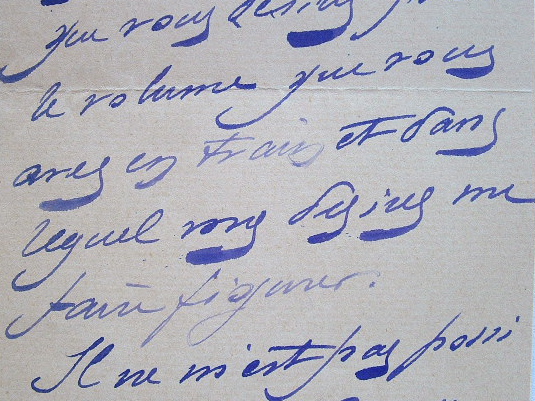 que vous désirez
le volume que vous
avez en train et dans
lequel vous désirez me
faire figurer.
Il ne m'est pas possi